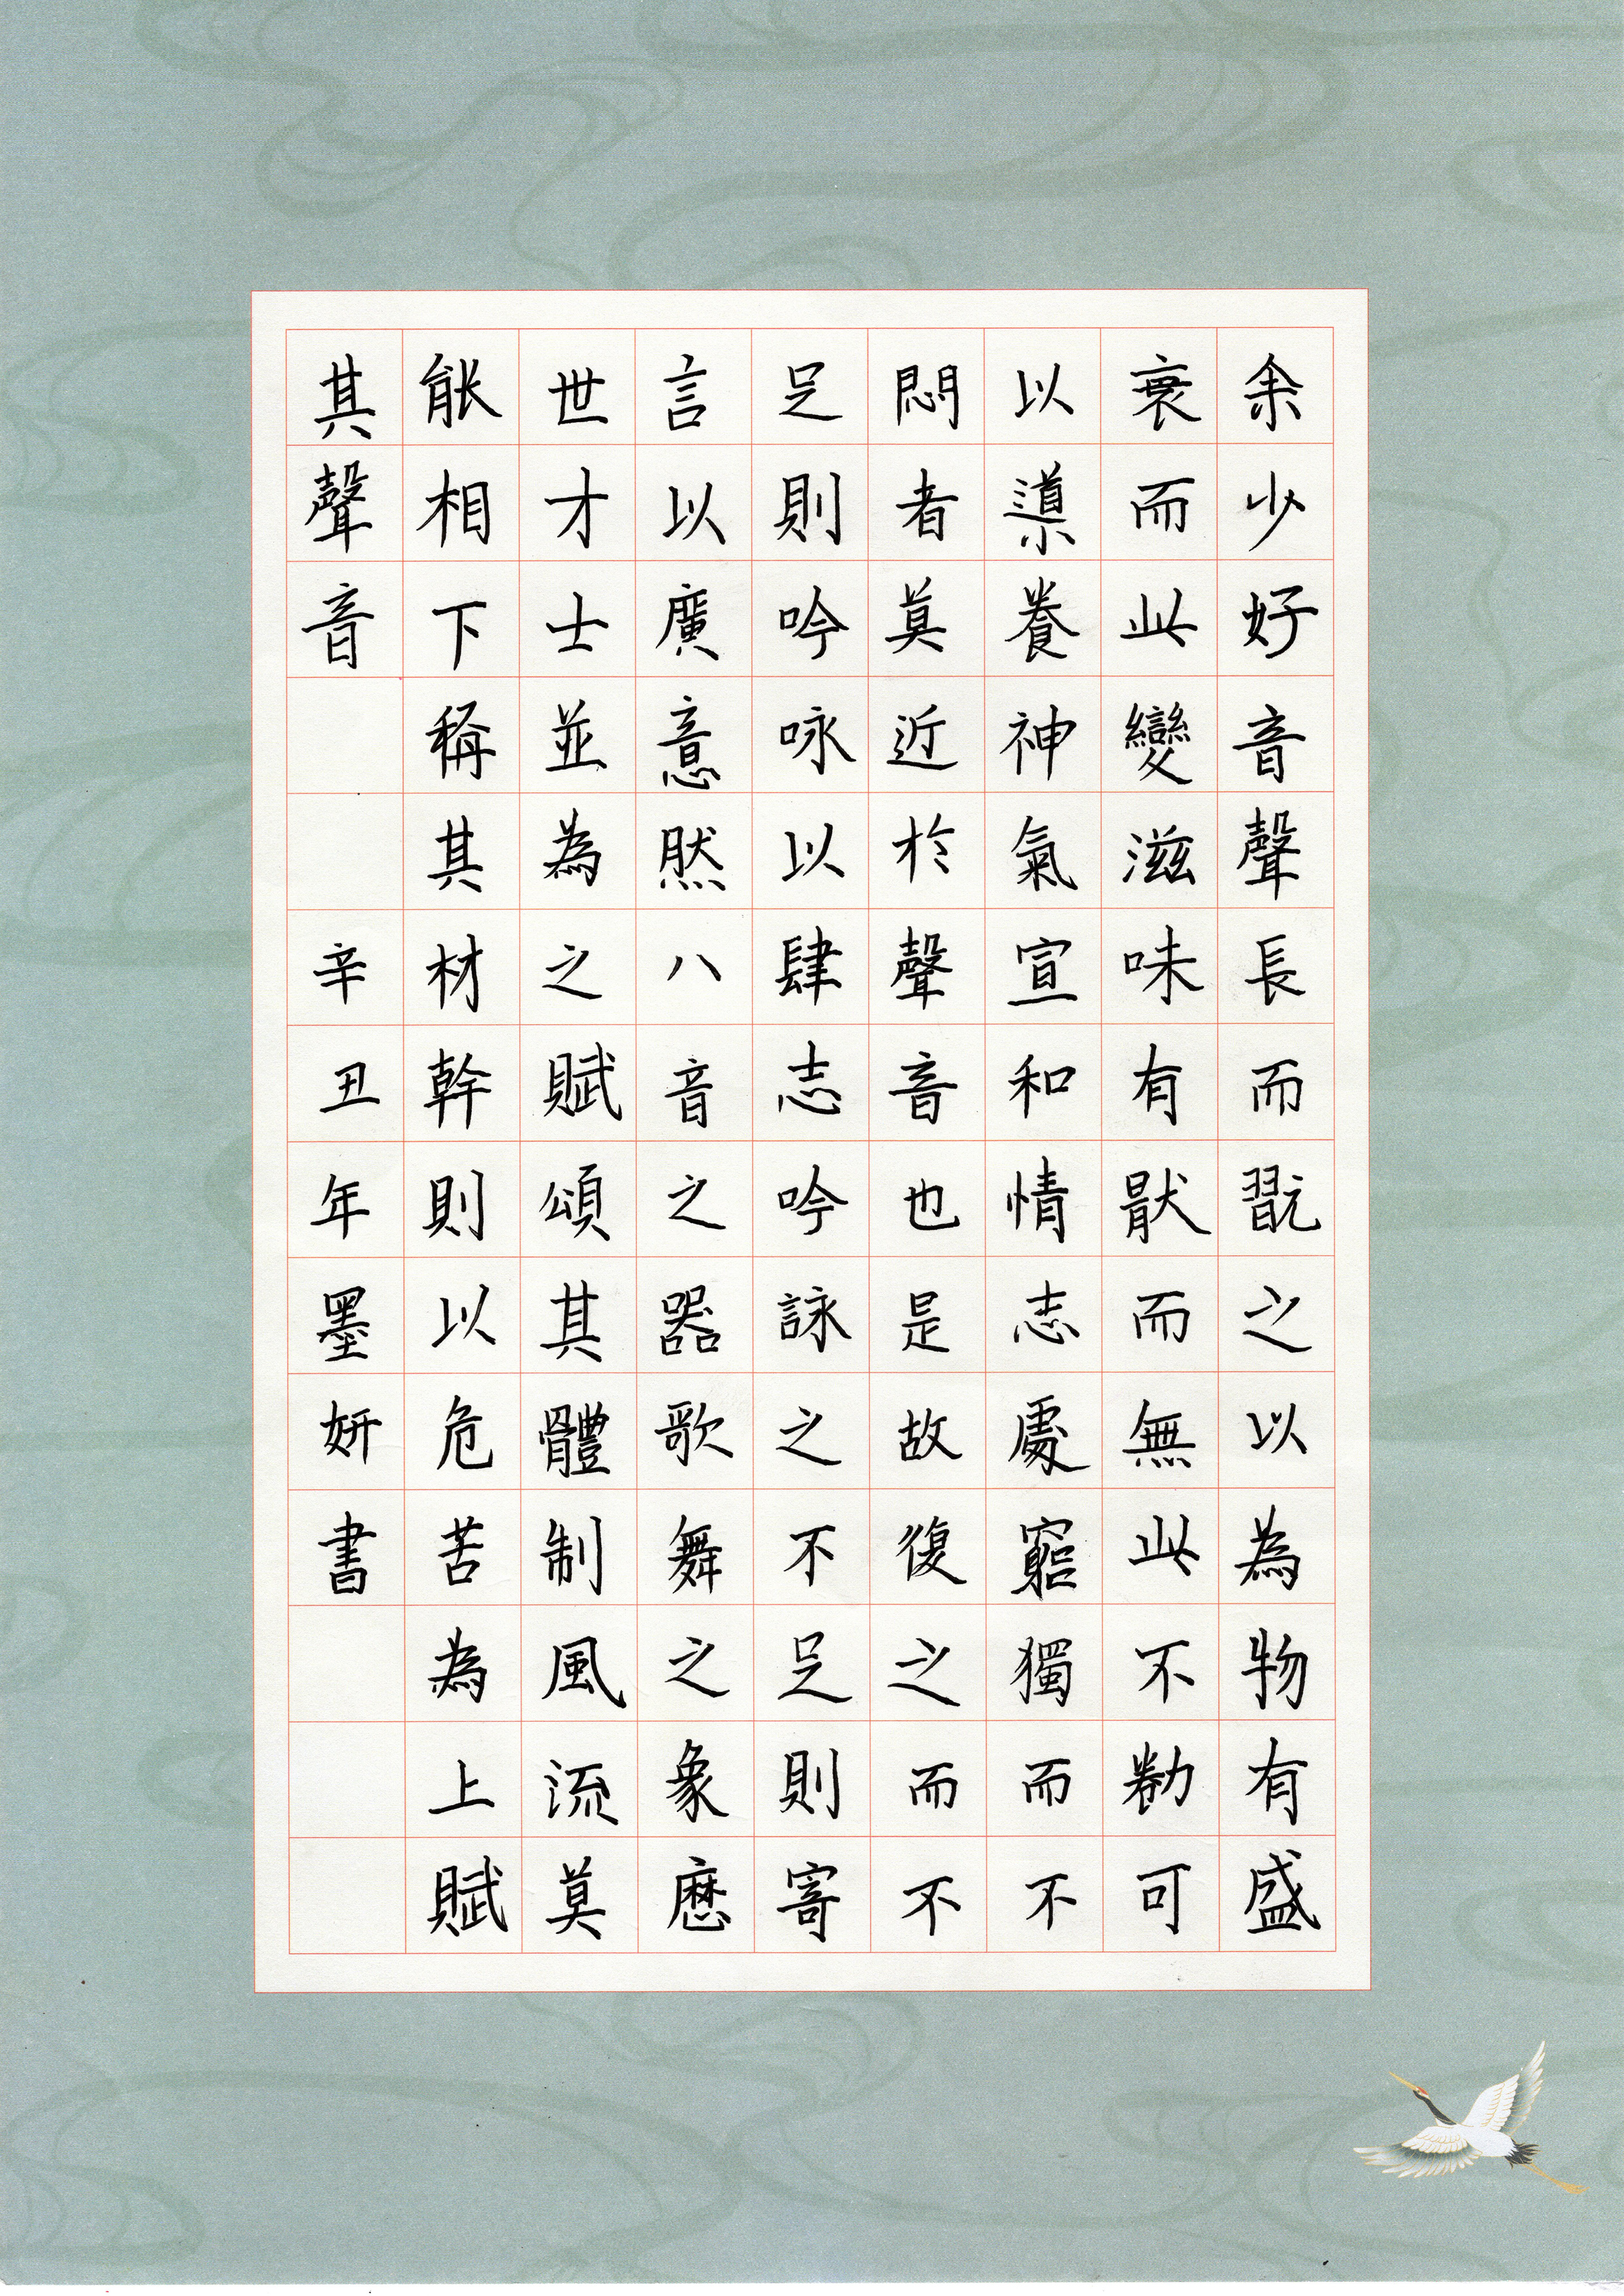 余少好音聲長而翫之以為物有盛
衰而此變滋味有猒而無此不勌可
以導養神氣宣和情志處窮獨而不
悶者莫近於聲音也是故復之而不
足則吟咏以肆志吟詠之不足則寄
言以廣意然八音之器歌舞之象歷
世才士並為之賦頌其體制風流莫
能相下稱其材幹則以危苦為上賦
其聲音
辛丑年墨妍書